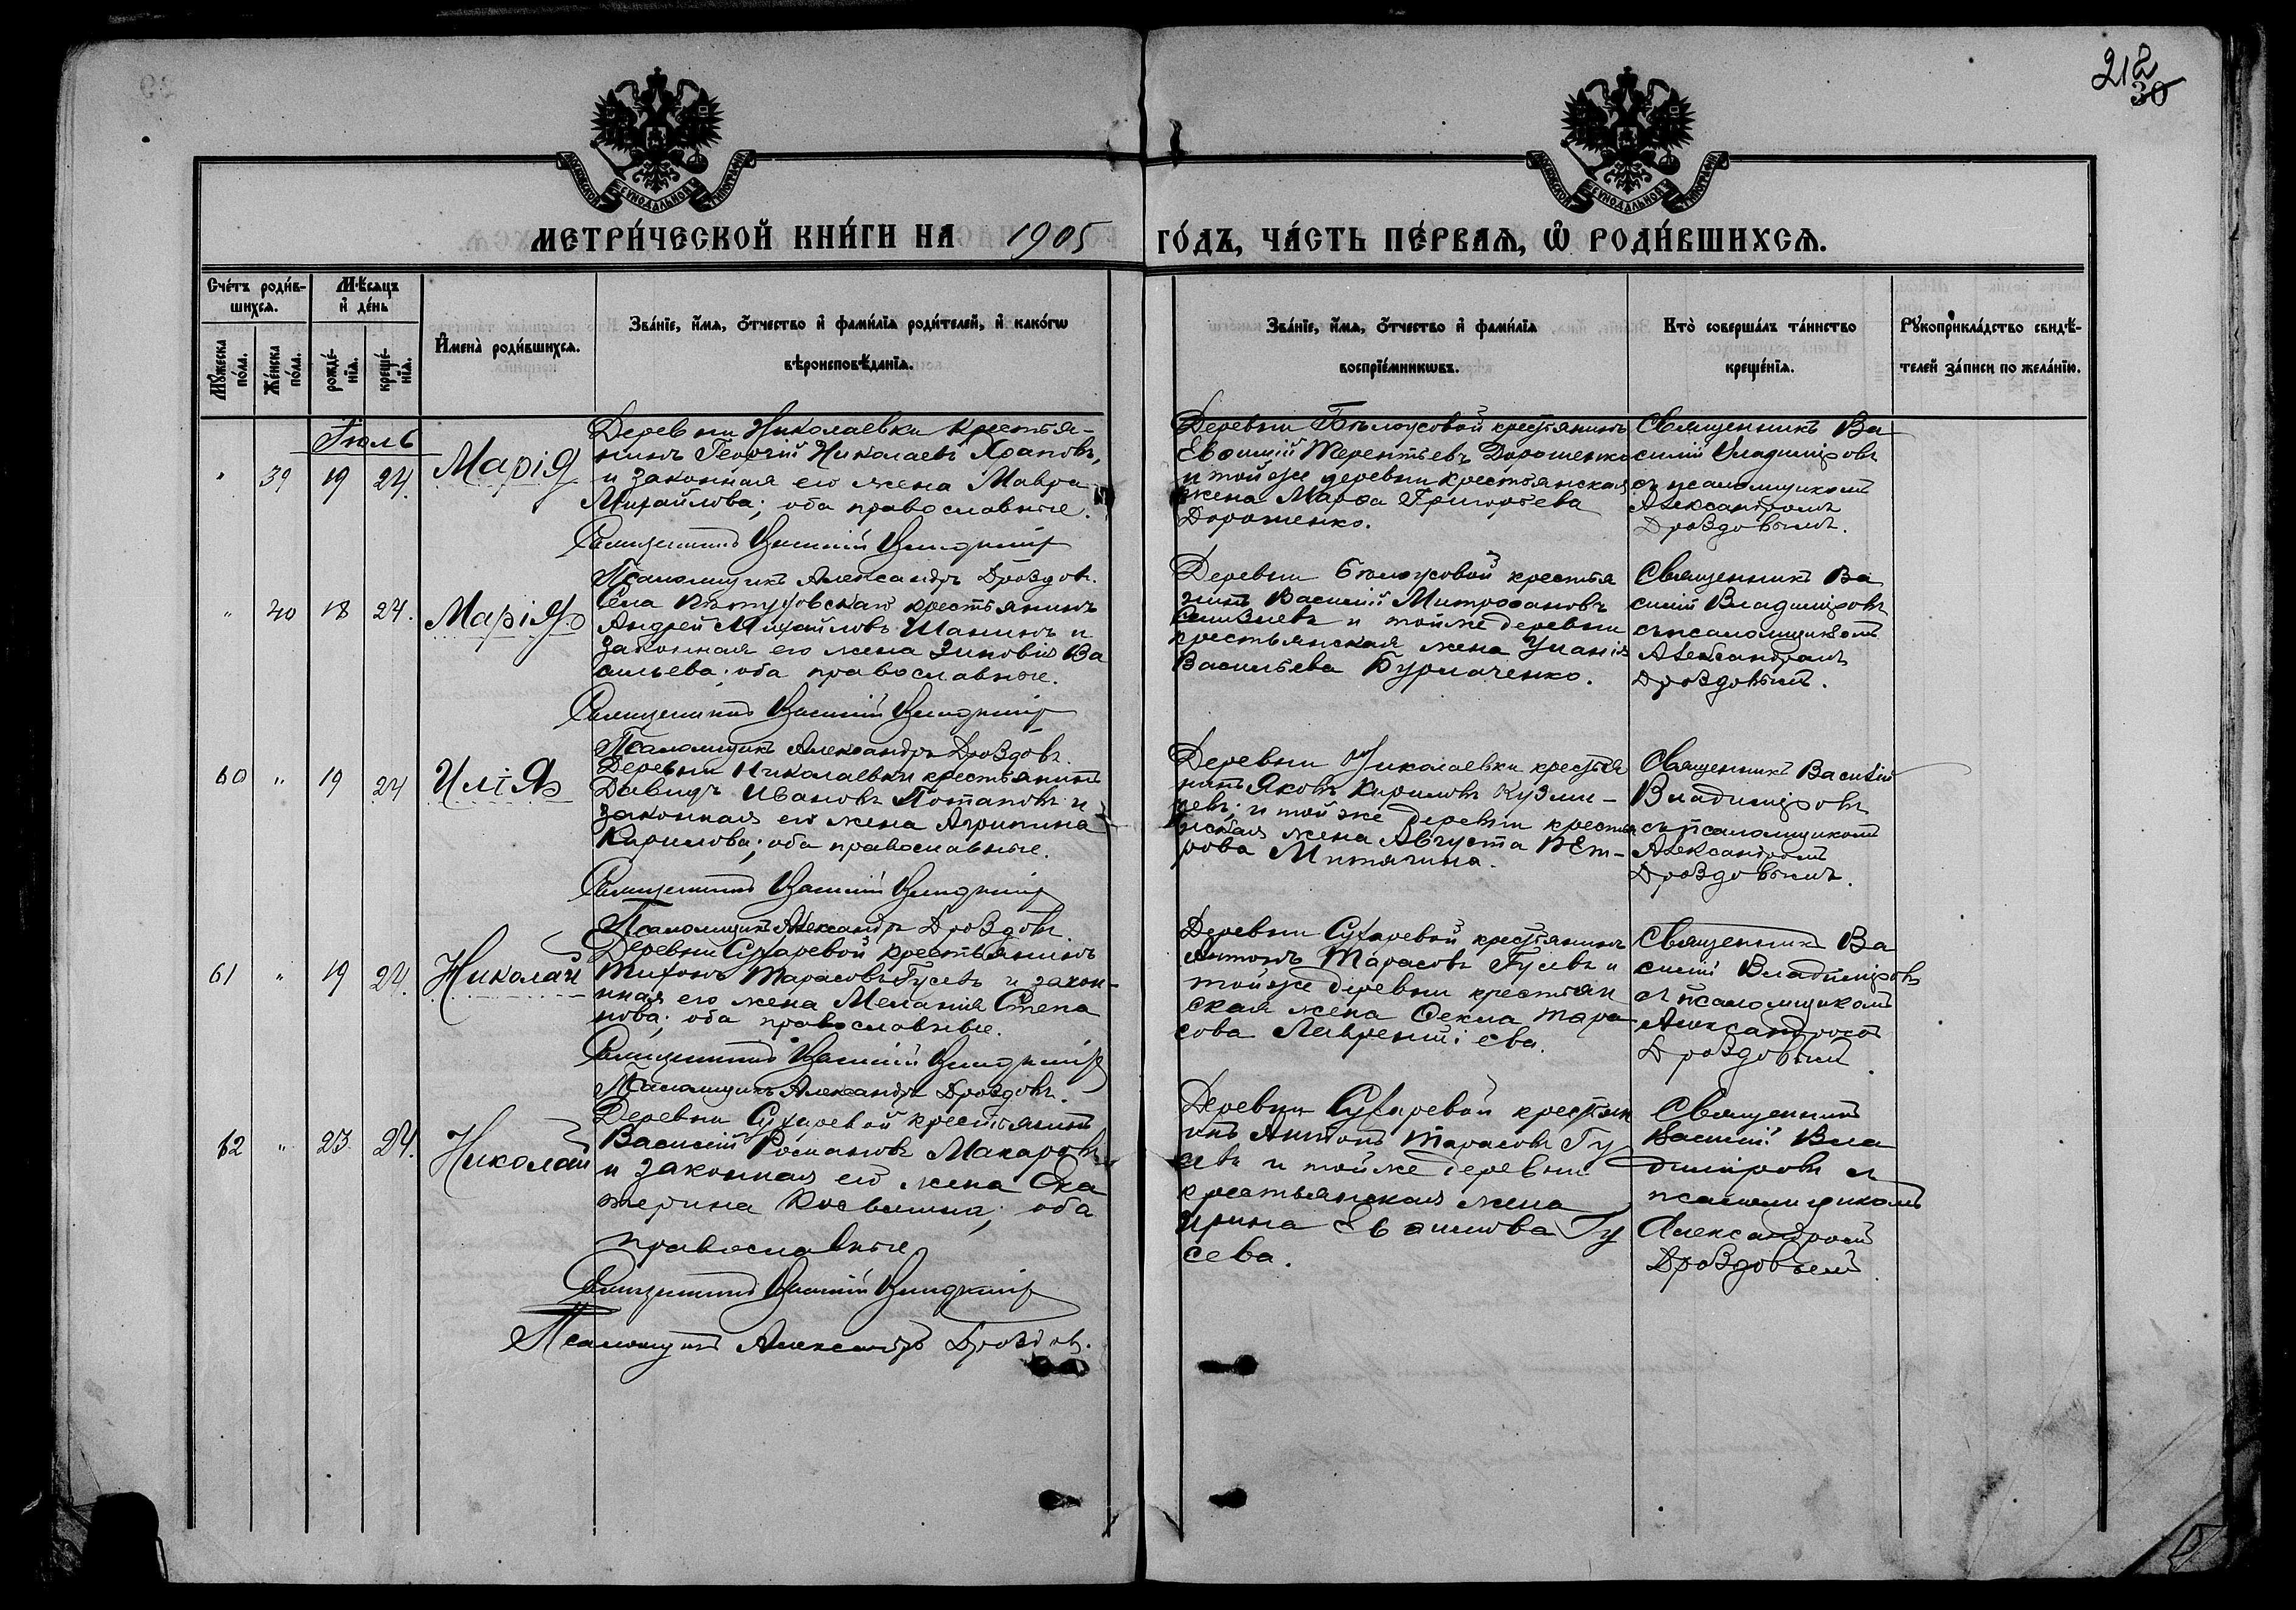 212
30
МЕТРИ́ЧЕСКОЙ КНИ́ГИ НА 1905 ГО́ДЪ, ЧА́СТЬ ПЕ́РВАѦ, Ѡ҆ РОДИ́ВШИХСѦ.
Сче́тъ роди́в-
шихсѧ.
Мѣ́сѧцъ
и҆ де́нь
Мꙋ́жеска
по́ла.
Же́нска
по́ла.
рожде́-
нїѧ.
креще́-
нїѧ.
И҆мена̀ роди́вшихсѧ.
Зва́нїе, и҆́мѧ, ѻ҆́тчество и҆ фами́лїѧ роди́телей, и҆ како́гѡ
вѣроисповѣ́данїѧ.
Зва́нїе, и҆́мѧ, ѻ҆́тчество и҆ фами́лїѧ
воспрїе́мникѡвъ.
Кто̀ соверша́лъ та́инство
креще́нїѧ.
Рꙋкоприкла́дство свидѣ́-
телей за́писи по жела́нїю.
Іюль
" 39 19 24. Марія
Деревни Николаевки крестья-
нинъ Георгій Николаевъ
и законная его жена Мавра
Михайлова; оба православные.
Священникъ Василій Владиміровъ
Псаломщикъ Александръ Дроздовъ.
Деревни Бѣлоусовой крестьянинъ
Евѳимій Терентьевъ Дорошенко
и той же деревни крестьянская
жена Марѳа Григорьева
Дорошенко.
Священникъ Ва
силій Владиміровъ
съ псаломщикомъ
Александромъ
Дроздовымъ.
" 40 18 24. Марія
Села крестьянинъ
Андрей Михайловъ Шанинъ и
законная его жена Зиновія Ва
сильева; оба православные.
Священникъ Василій Владиміровъ
Псаломщикъ Александръ Дроздовъ.
Деревни Бѣлоусовой крестья
нинъ Василій Митрофановъ
и той же деревни
крестьянская жена
Васильева Бурмаченко.
Священникъ Ва
силій Владиміровъ
съ псаломщикомъ
Александромъ
Дроздовымъ.
60 " 19 24 Илія
Деревни Николаевки крестьянинъ
Давидъ Ивановъ Потаповъ и
законная его жена Агрипина
Кирилова; оба православные.
Священникъ Василій Владиміровъ
Псаломщикъ Александръ Дроздовъ
Деревни Николаевки крестья
нинъ Яковъ Кириловъ Кузми-
чевъ; и той же деревни крестья
нская жена Августа Пет-
рова Митягина.
Священникъ Василій
Владиміровъ
съ псаломщикомъ
Александромъ
Дроздовымъ.
61 " 19 24. Николай
Деревни Сухаревой крестьянинъ
Тихонъ Тарасовъ Гусевъ и закон-
нная его жена Меланія Степа
нова; оба православные.
Священникъ Василій Владиміровъ
Псаломщикъ Александръ Дроздовъ.
Деревни Сухаревой крестьянинъ
Антонъ Тарасовъ Гусевъ и
той же деревни крестьян
ская жена Ѳекла Тара
сова Лаврентіева.
Священникъ Ва
силій Владиміровъ
съ псаломщикомъ
Александромъ
Дроздовымъ.
62 " 23. 24. Николай
Деревни Сухаревой крестьянинъ
Василій Романовъ Макаровъ
и законная его жена Ека
терина оба
православные
Священникъ Василій Владиміровъ
Псаломщикъ Александръ Дроздовъ.
Деревни Сухаревой крестьян
инъ Антонъ Тарасовъ Гу
севъ и той же деревни
крестьянская жена
Ирина Евѳимова Гу
сева.
Священникъ
Василій Вла
диміровъ съ
псаломщикомъ
Александромъ
Дроздовымъ.